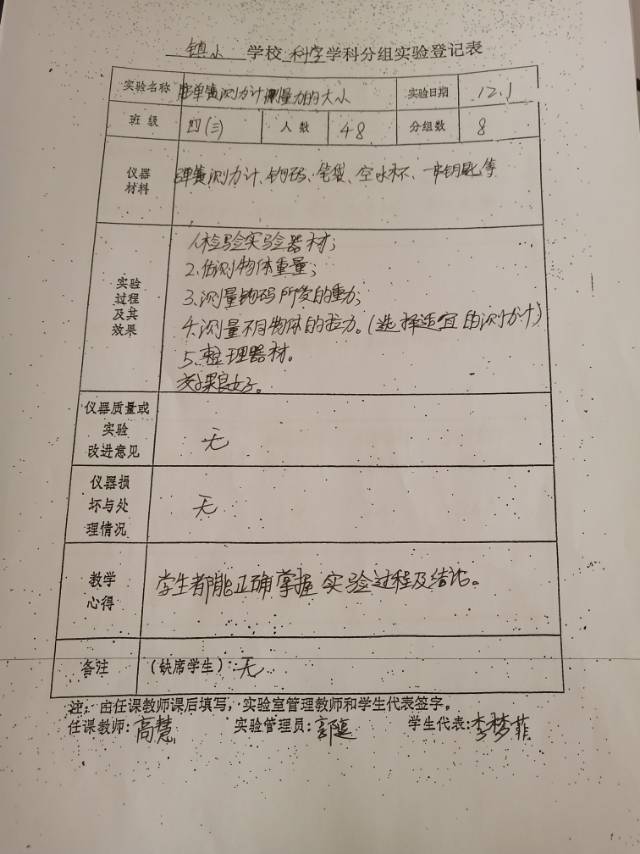 镇小 学校 科学 学科分组实验登记表
实验名称 用弹簧测力计测量力的大小 实验日期 12.1
班级 四(三) 人数 48 分组数 8
仪器材料 弹簧测力计、钩码、笔袋、空水杯、一串钥匙等
实验过程及其效果
1.检验实验器材；
2.估测物体重量；
3.测量钩码所受的重力；
4.测量不同物体的拉力。(选择适宜的测力计)
5.整理器材。
效果良好。
仪器质量或实验改进意见 无
仪器损坏与处理情况 无
教学心得 学生都能正确掌握实验过程及结论。
备注 (缺席学生)：无
注：由任课教师课后填写，实验室管理教师和学生代表签字。
任课教师：高慧 实验管理员：郭 学生代表：李梦菲